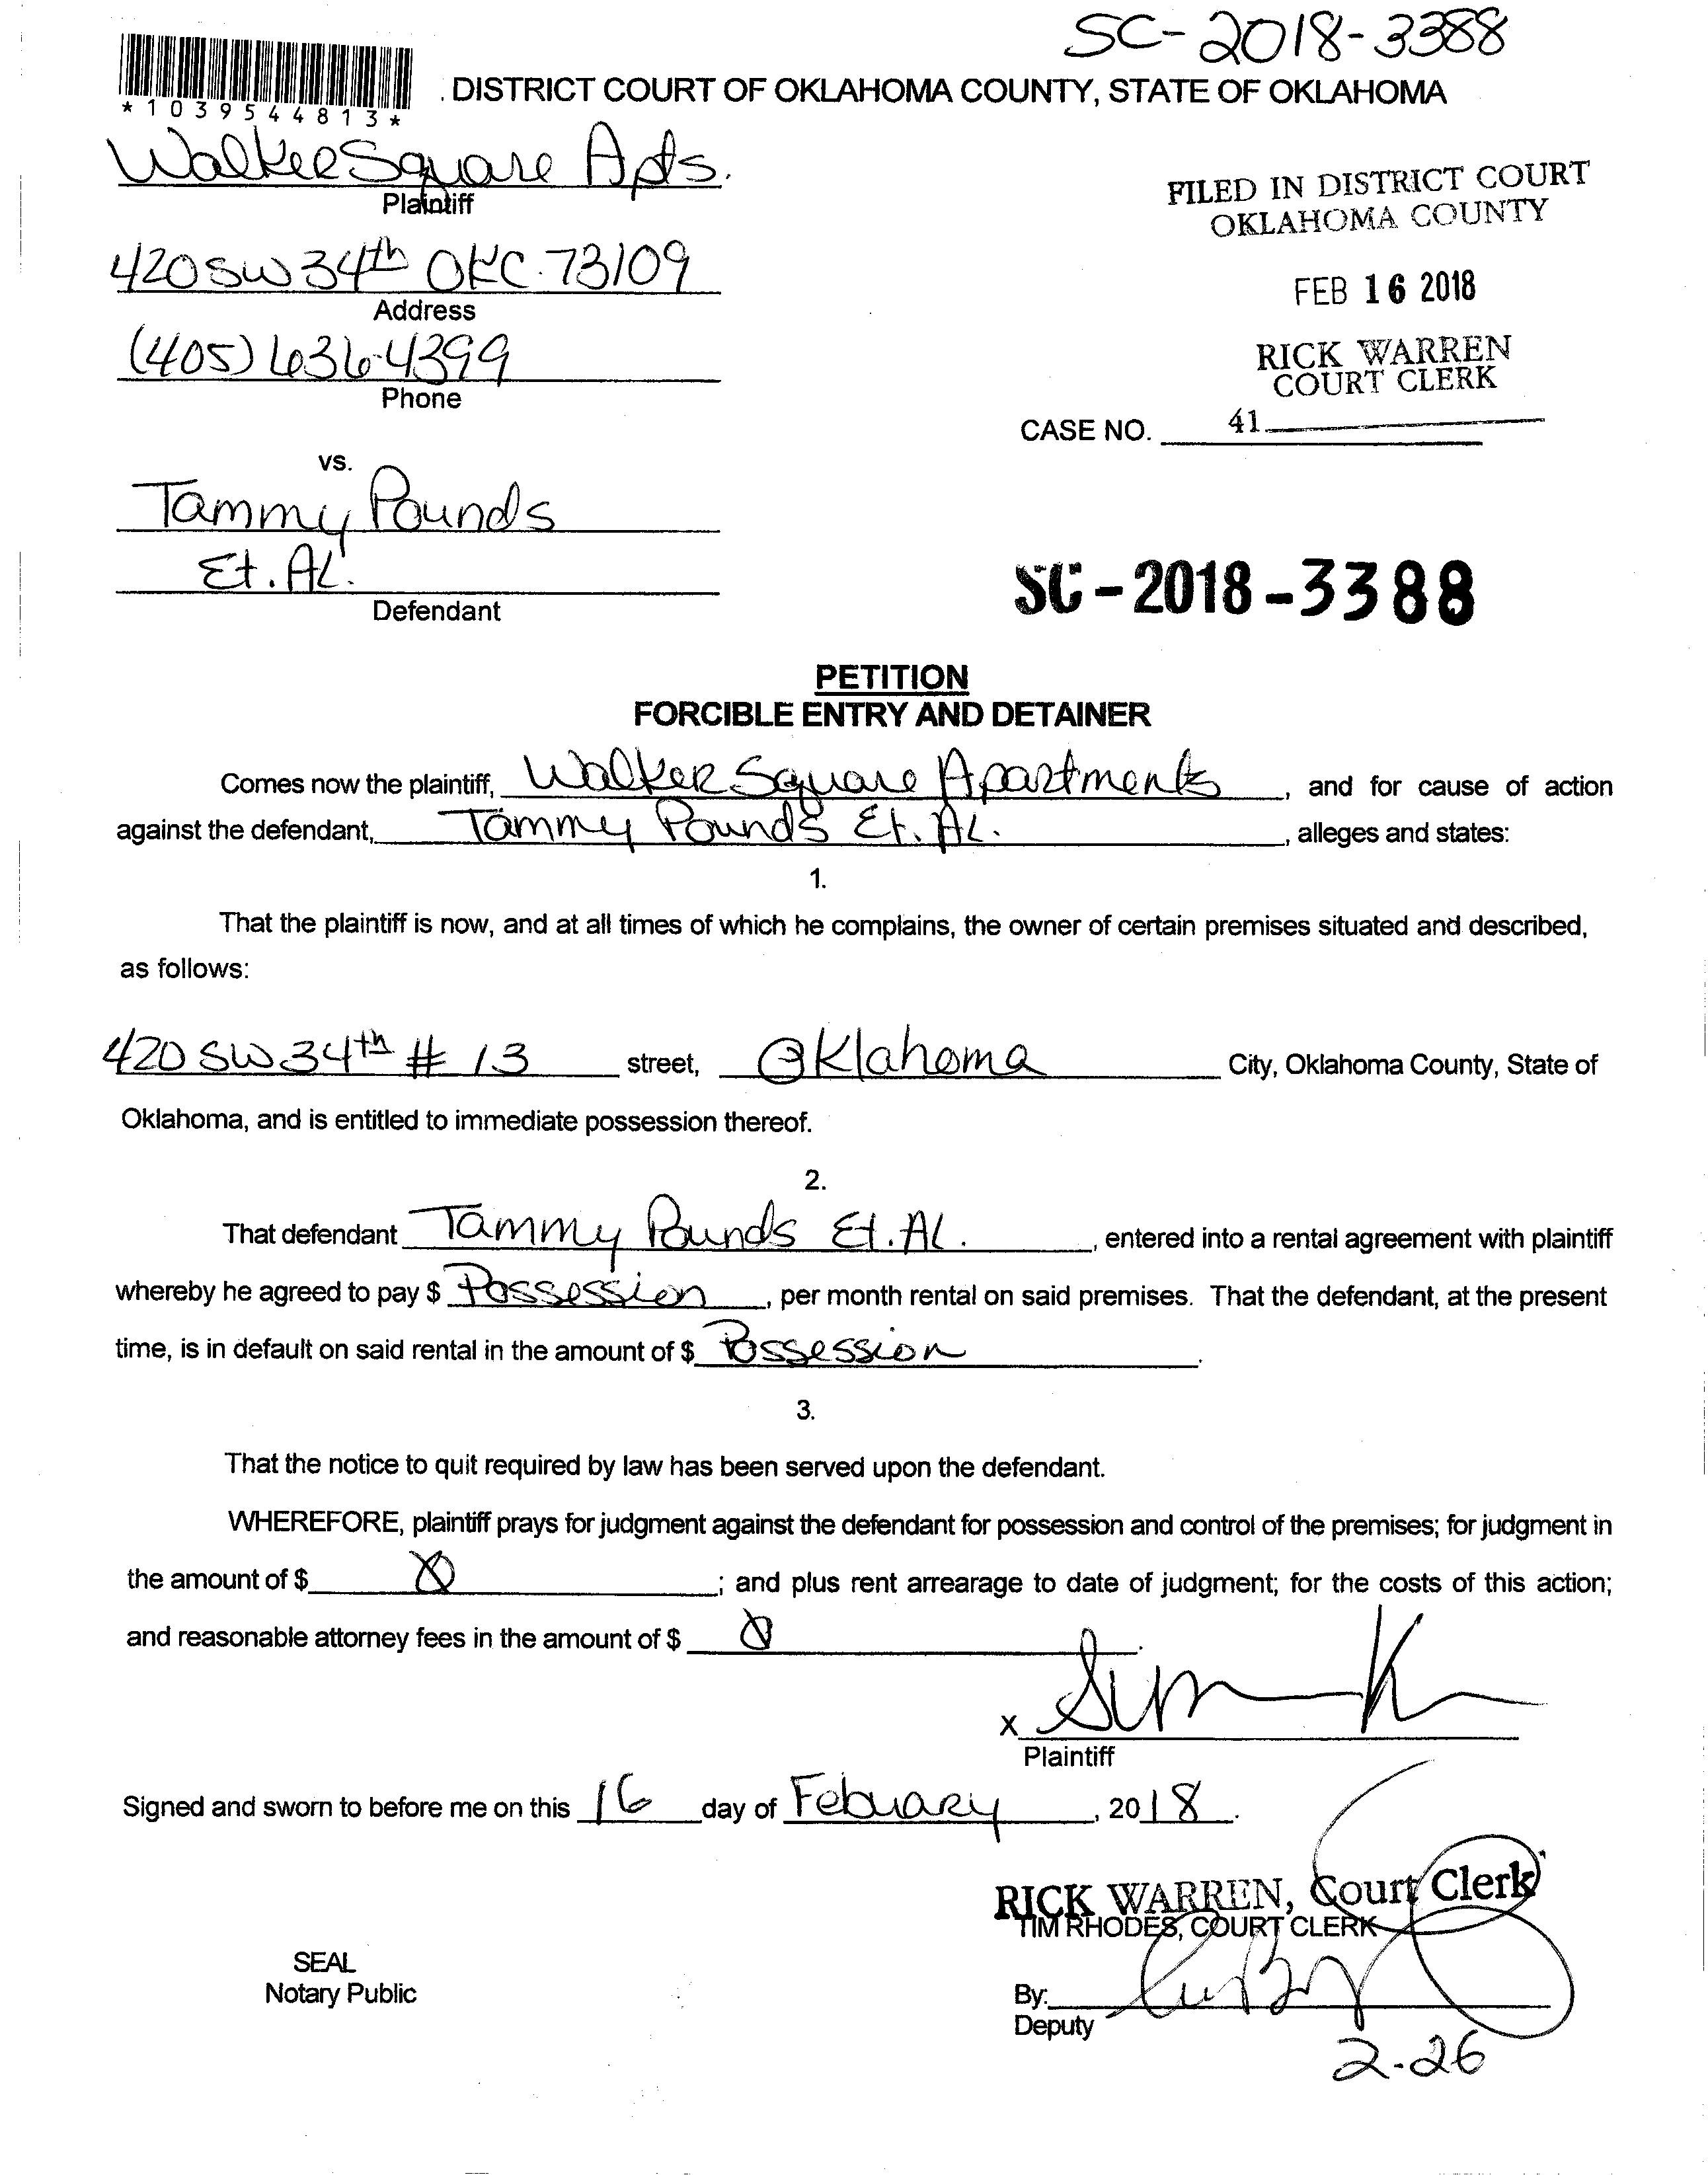 SC-2018-3388
*1039544813*
. DISTRICT COURT OF OKLAHOMA COUNTY, STATE OF OKLAHOMA
Walker Square Apts.
Plaintiff
FILED IN DISTRICT COURT
OKLAHOMA COUNTY
420 SW 34th OKC. 73109
Address
FEB 16 2018
(405) 636-4399
Phone
RICK WARREN
COURT CLERK
CASE NO. 41
vs.
Tammy Pounds
Et. AL.
Defendant
SC-2018-3388
PETITION
FORCIBLE ENTRY AND DETAINER
Comes now the plaintiff, Walker Square Apartments, and for cause of action
against the defendant, Tammy Pounds Et. AL., alleges and states:
1.
That the plaintiff is now, and at all times of which he complains, the owner of certain premises situated and described,
as follows:
420 SW 34th # 13 street, Oklahoma City, Oklahoma County, State of
Oklahoma, and is entitled to immediate possession thereof.
2.
That defendant Tammy Pounds Et. AL., entered into a rental agreement with plaintiff
whereby he agreed to pay $ Possession, per month rental on said premises. That the defendant, at the present
time, is in default on said rental in the amount of $ Possession.
3.
That the notice to quit required by law has been served upon the defendant.
WHEREFORE, plaintiff prays for judgment against the defendant for possession and control of the premises; for judgment in
the amount of $ ; and plus rent arrearage to date of judgment; for the costs of this action;
and reasonable attorney fees in the amount of $ .
X
Plaintiff
Signed and sworn to before me on this 16 day of Febuary, 2018.
RICK WARREN, Court Clerk
TIM RHODES, COURT CLERK
SEAL
Notary Public
By:
Deputy
2-26